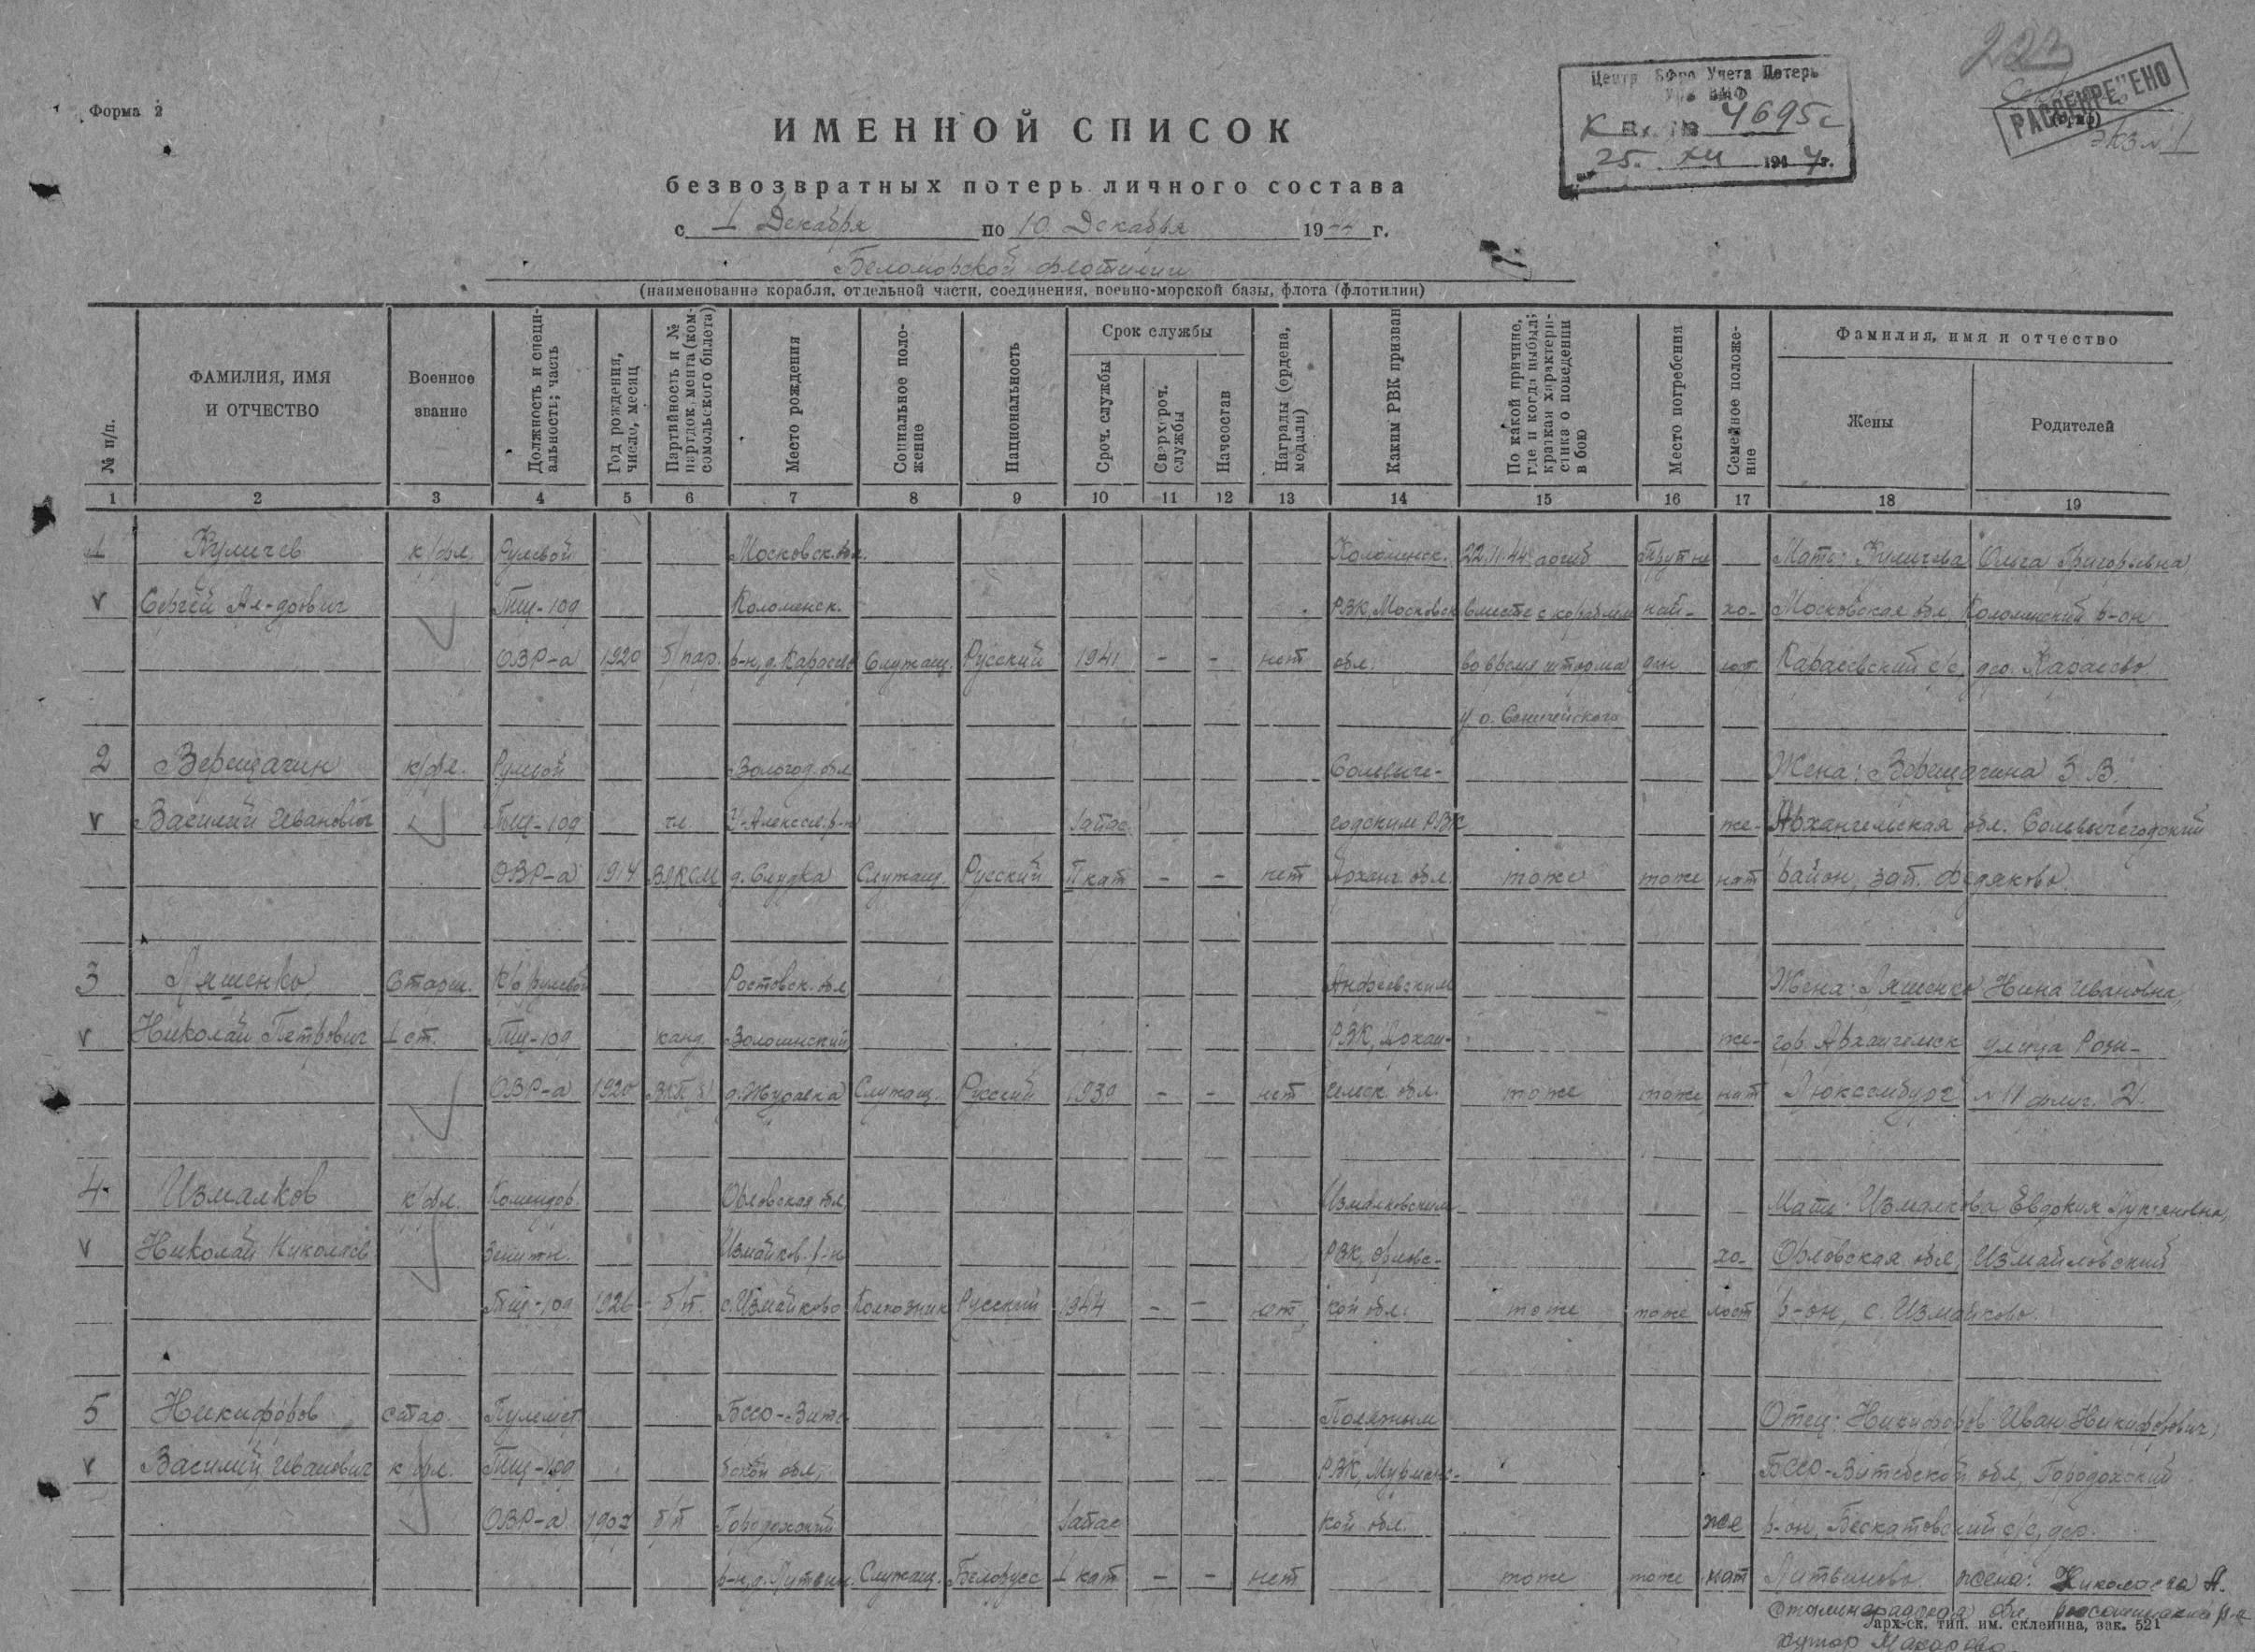 Форма 2
223
Центр Бюро Учета Потерь
ВМФ
К Вх. № 4695с
25. XII 1944г.
РАССЕКРЕЧЕНО
Экз № 1
ИМЕННОЙ СПИСОК
безвозвратных потерь личного состава
с 1 Декабря по 10 Декабря 1944 г.
Беломорской флотилии
(наименование корабля, отдельной части, соединения, военно-морской базы, флота (флотилии)
№ п/п.
ФАМИЛИЯ, ИМЯ И ОТЧЕСТВО
Военное звание
Должность и специальность; часть
Год рождения, число, месяц
Партийность и № партдокумента (комсомольского билета)
Место рождения
Социальное положение
Национальность
Срок службы
Сроч. службы
Сверхсроч. службы
Начсостав
Награды (ордена, медали)
Каким РВК призван
По какой причине, где и когда выбыл; краткая характеристика о поведении в бою
Место погребения
Семейное положение
Фамилия, имя и отчество
Жены
Родителей
1 2 3 4 5 6 7 8 9 10 11 12 13 14 15 16 17 18 19
1 Куличев к/фл. Рулевой Московск. обл. Коломенск. 22.11.44 погиб Труп не Мать: Куличева Ольга Григорьевна
v Сергей Ал-дрович Тщ-109 Коломенск. РВК, Московск вместе с кораблем най- хо- Московская обл Коломенский р-он
ОВР-а 1920 б/пар. р-н, д. Карасево Служащ. Русский 1941 - - нет обл. во время шторма ден лост Карасевский с/с, дер. Карасево.
у о.
2 Верещагин к/фл. Рулевой Вологод. обл Сольвыче- Жена: Верещагина З. В.
v Василий Иванович Тщ-109 чл. р-н Запас годским РВК же- Архангельская обл. Сольвычегодский
ОВР-а 1914 ВЛКСМ д. Слудка Служащ. Русский II кат - - нет Арханг. обл. тоже тоже нат район, зап. Федяково.
3 Ляшенко Старш. К/о рулевой Ростовск. обл Жена: Ляшенко Нина Ивановна,
v Николай Петрович 1 ст. Тщ-109 канд РВК, Архан- же- гор. Архангельск улица Розы-
ОВР-а 1920 ВКП б д. Журавка Служащ. Русский 1939 - - нет гельск обл. тоже тоже нат Люксембург № 11 флиг. 2.
4 Измалков к/фл. Комендор Орловская обл, Измалковским Мать: Измалкова Евдокия Лукьяновна,
v Николай Николаев Зенитн. Измайков. р-н РВК, Орловс- хо- Орловская обл, Измайловский
Тщ-109 1926 б/п. с. Измайково Колхозник Русский 1944 - - нет кой обл. тоже тоже лост р-он, с. Измайково.
5 Никифоров Старш. Пулемет БССР-Витеб Полярным Отец: Никифоров Иван Никифорович,
v Василий Иванович к/фл. Тщ-109 ской обл, РВК, Мурманс- БССР-Витебской обл, Городокский
ОВР-а 1907 б/п Городокский Запас кой обл. же р-он, Бескатовский с/с, дер.
р-н, д. Литвин. Служащ. Белорусс 1 кат - - нет тоже тоже нат Литвиново. жена: Николаева А.
Сталинградская обл.
арх-ск. тип. им. склепина, зак. 521
хутор Макарово.